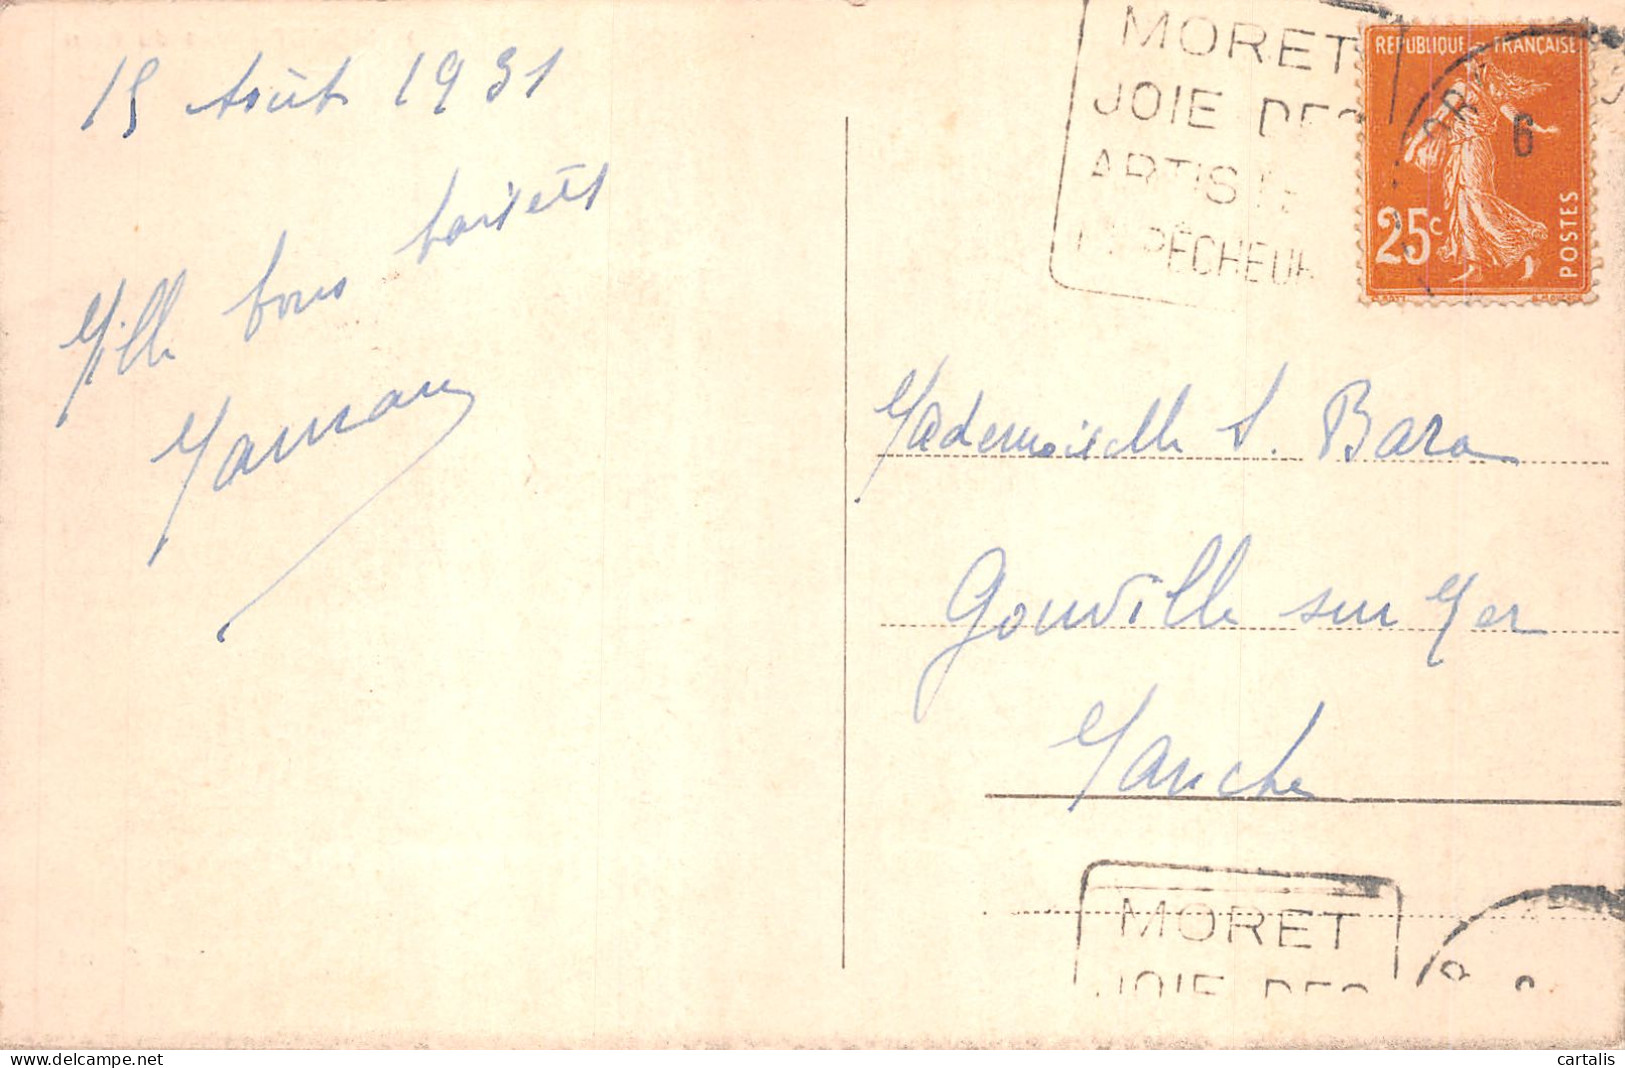 15 Août 1931
Mille bons baisers
Maman
MORET
JOIE DES
ARTISTE
PÊCHEUR
REPUBLIQUE FRANÇAISE
6
25c
POSTES
Mademoiselle S. Bara
Gouville sur Mer
Manche
MORET
JOIE DES
cartalis